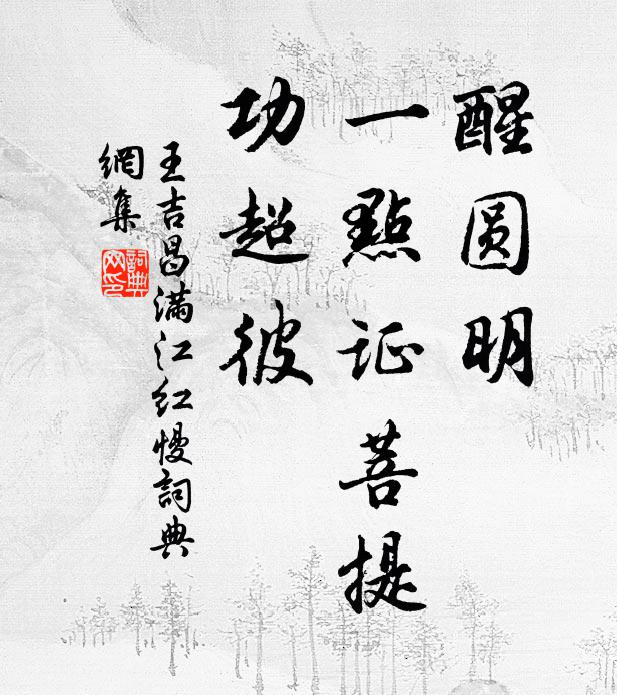 醒圆明
一點证菩提
功超彼
王吉昌满江红慢詞典
網集
詞典
网印